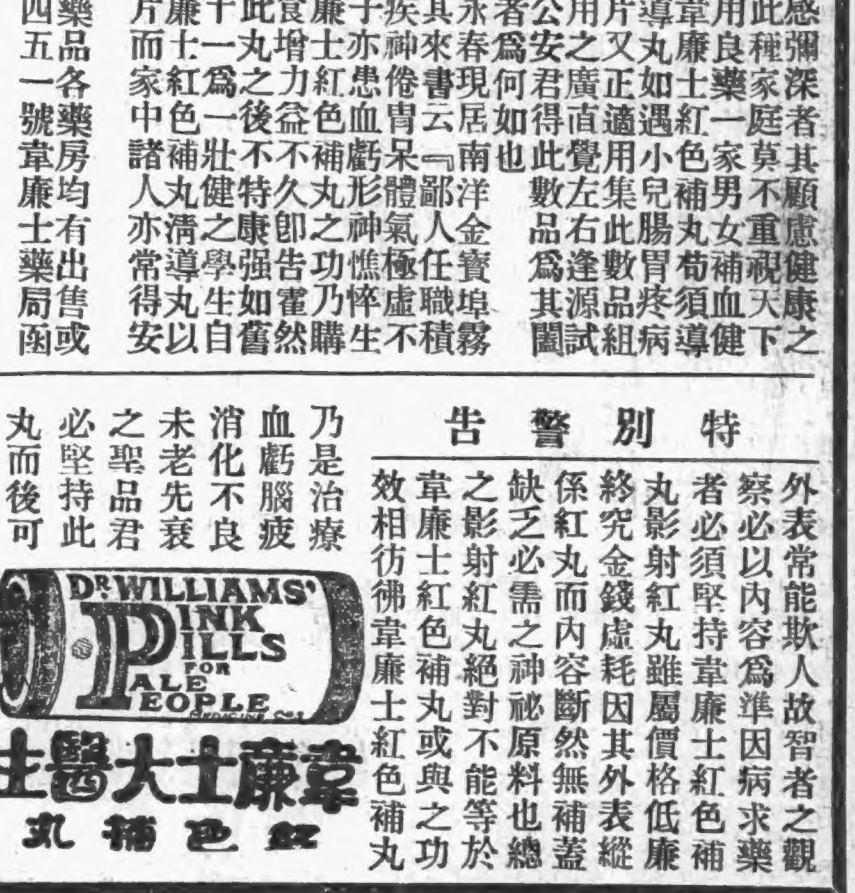 感彌深者其顧慮健康之
此種家庭莫不重視天下
用良藥一家男女補血健
韋廉士紅色補丸苟須導
導丸如遇小兒腸胃疼病
片又正適用集此數品組
用之廣直覺左右逢源試
公安君得此數品爲其闔
者爲何如也
永春現居南洋金寶埠霧
其來書云『鄙人任職積
疾神倦胃呆體氣極虛不
子亦患血虧形神憔悴生
廉士紅色補丸之功乃購
食增力益不久卽告霍然
此丸之後不特康强如舊
十一爲一壯健之學生自
廉士紅色補丸淸導丸以
片而家中諸人亦常得安
藥品各藥房均有出售或
四五一號韋廉士藥局函
特別警告
外表常能欺人故智者之觀
察必以內容爲準因病求藥
者必須堅持韋廉士紅色補
丸影射紅丸雖屬價格低廉
終究金錢虛耗因其外表縱
係紅丸而內容斷然無補蓋
缺乏必需之神祕原料也總
之影射紅丸絕對不能等於
韋廉士紅色補丸或與之功
效相彷彿韋廉士紅色補丸
乃是治療
血虧腦疲
消化不良
未老先衰
之聖品君
必堅持此
丸而後可
DR. WILLIAMS'
PINK
PILLS
FOR
PALE
PEOPLE
韋廉士大醫士
紅色補丸